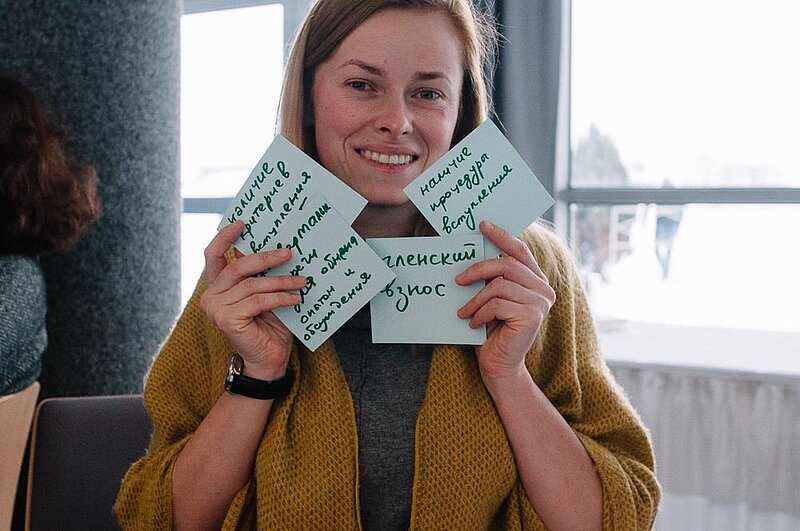 наличие
критериев
вступления
обмена
опытом и
обсуждения
наличие
процедуры
вступления
членский
взнос